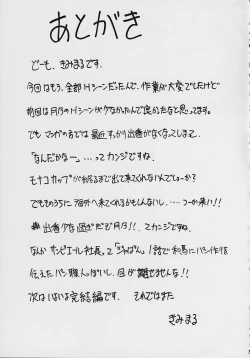 あとがき
どーも、きみまるです。
今回はもう、全部Hシーンだったんで、作業が大変でしたけど
前回は月乃のHシーンが少なかったんで良かったなと思ってます。
でも マンガの方では 最近すっかり出番がなくなってしまって、
「なんだかなー」…ってカンジですね。
モナコカップが終るまで出て来てくれないんでしょーか?
でもそのうちに 海外へ来てくれるかもしんないし、… つーか来い!!
出番少な過ぎだぞ月乃!!、てカンジですね。
なんか サンピエール社長って「ジャぱん」1話で和馬にパン作りを
伝えたパン職人っぽいし、目が離せませんな!!
次はいよいよ完結編です。 それではまた
きみまる